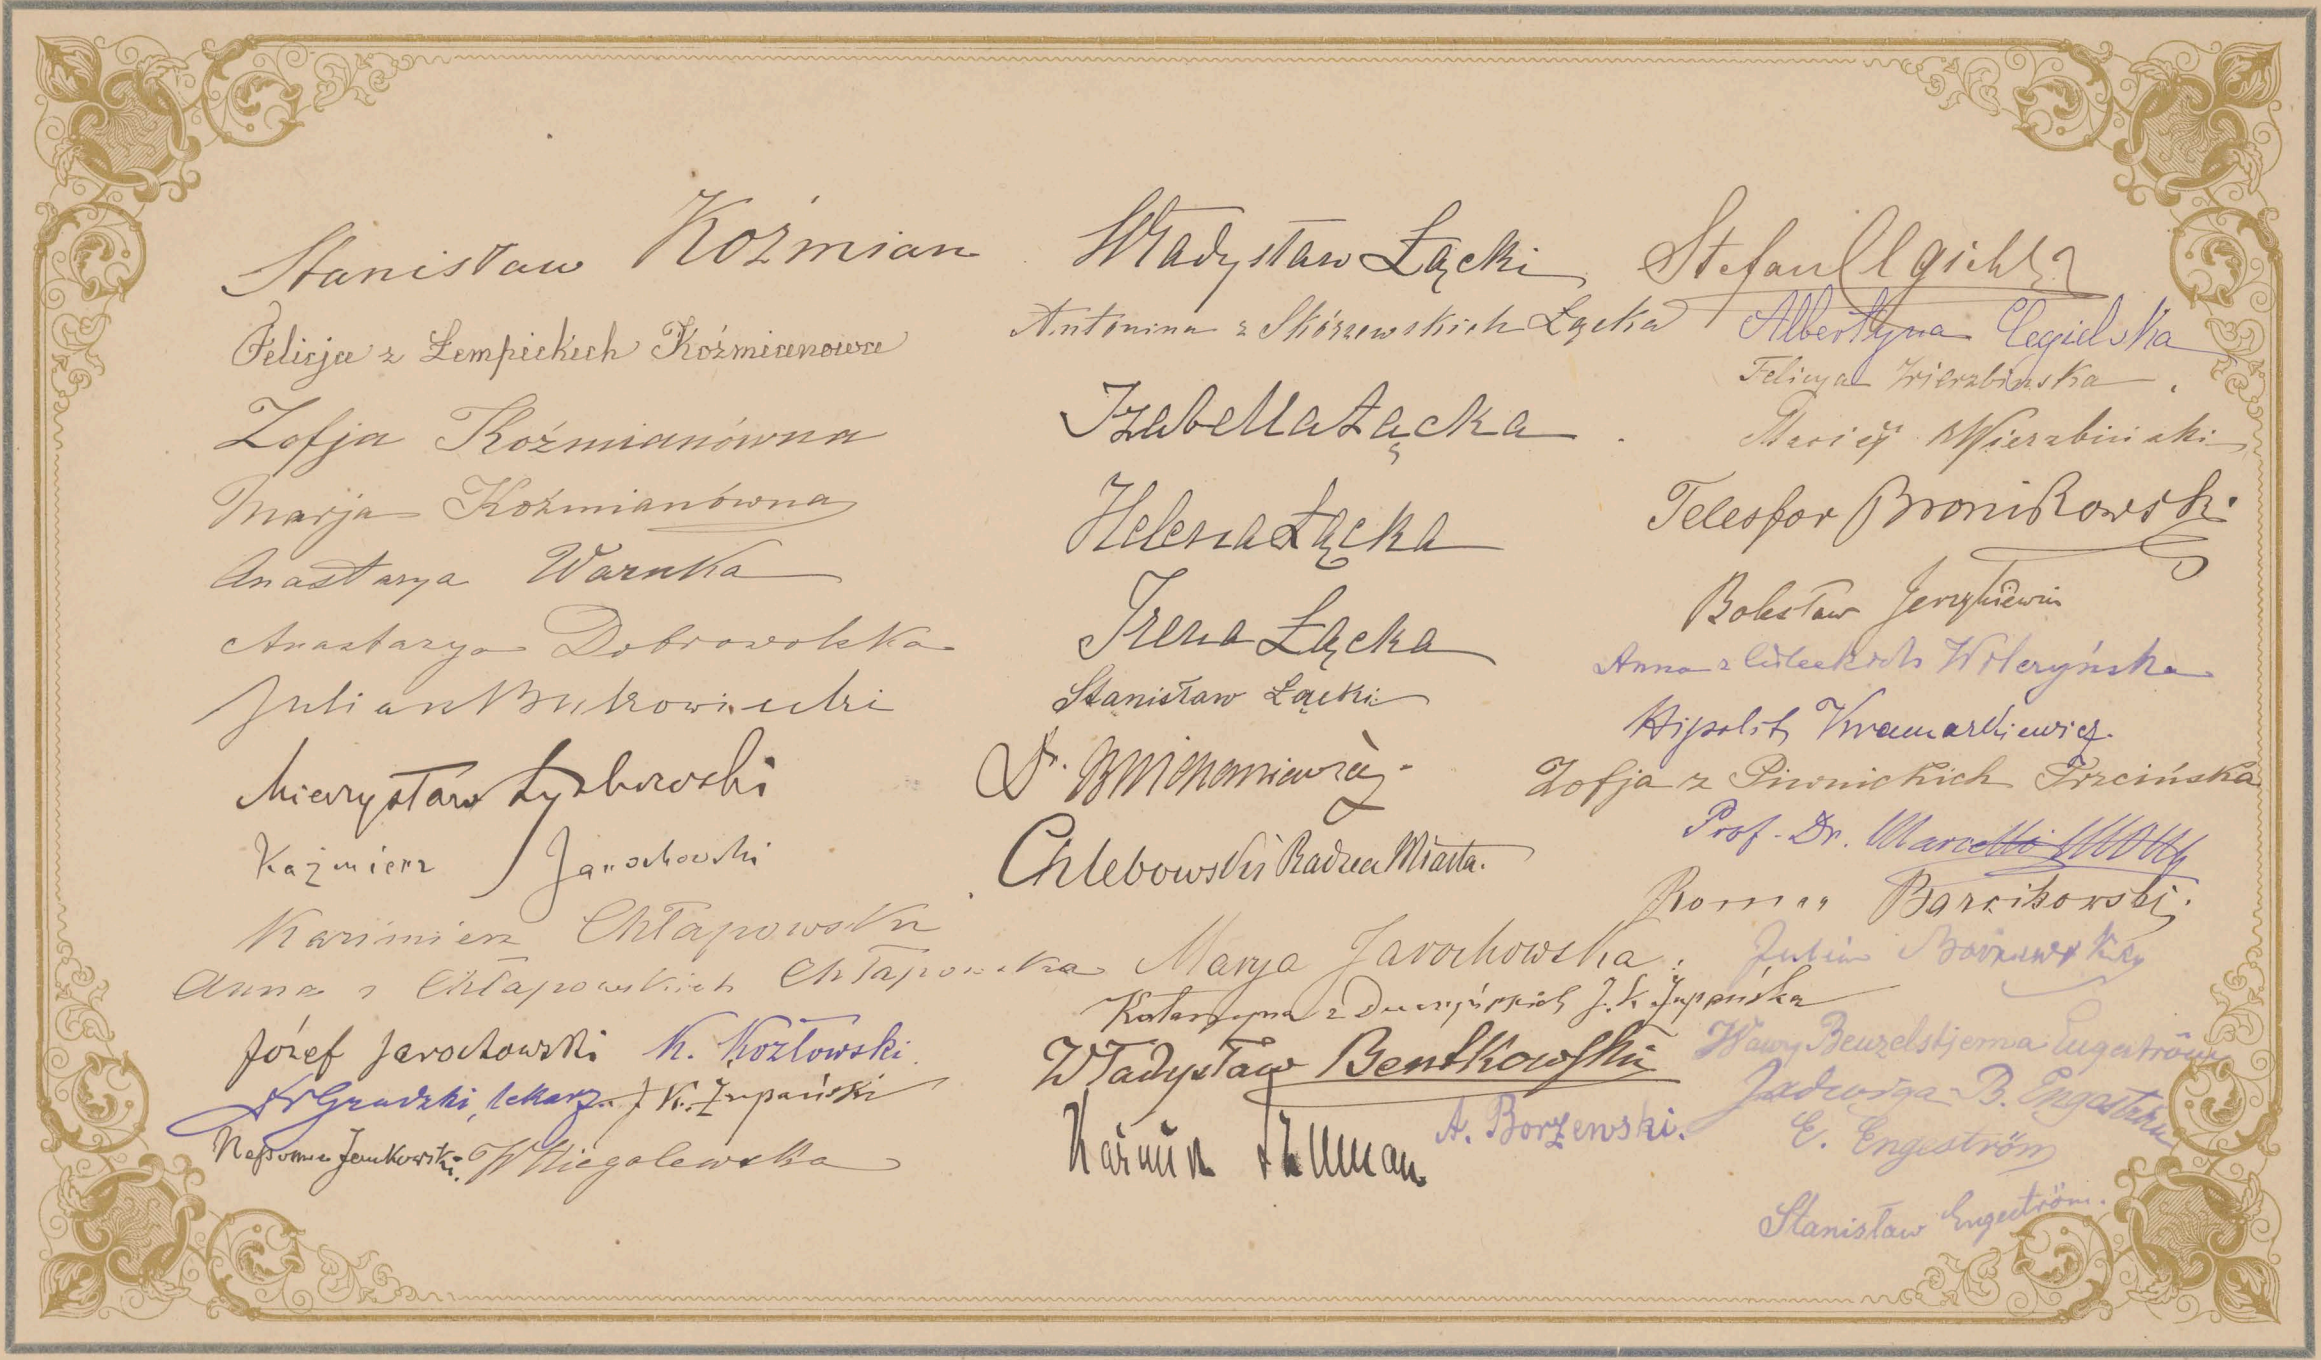 Stanisław Koźmian
Felicja z Łempickich Koźmianowa
Zofja Koźmianówna
Marja Koźmianówna
Anastazya Warnka
Anastazya Dobrowolska
Julian Bukowiecki
Mieczysław Łyskowski
Kaźmierz Jarochowski
Kazimierz Chłapowski
Anna z Chłapowskich Chłapowska
Józef Jarochowski K. Kozłowski
Dr Grodzki, lekarz. J. K. Żupański
Nepomucen Jankowski. W Niegolewska
Władysław Łącki
Antonina z Skórzewskich Łącka
Izabella Łącka
Helena Łącka
Irena Łącka
Stanisław Łącki
Dr.
Chlebowski Radzca Miasta.
Marya Jarochowska
Katarzyna z J. K. Żupańska
Władysław Bentkowski
Kaźmierz Szuman
A. Borzewski.
Stefan Cegielski
Albertyna Cegielska
Felicya Wierzbińska
Maciej Wierzbiński
Telesfor Bronikowski
Bolesław Jerzykiewicz
Anna z Wilczyńska
Hipolit Kramarkiewicz.
Zofja z Piwnickich Trzcińska
Prof. Dr. Marcelli Motty
Roman Barcikowski.
Wawrz. Benzelstjerna Engeström
Jadwiga B. Engeström
E. Engeström
Stanisław Engeström.